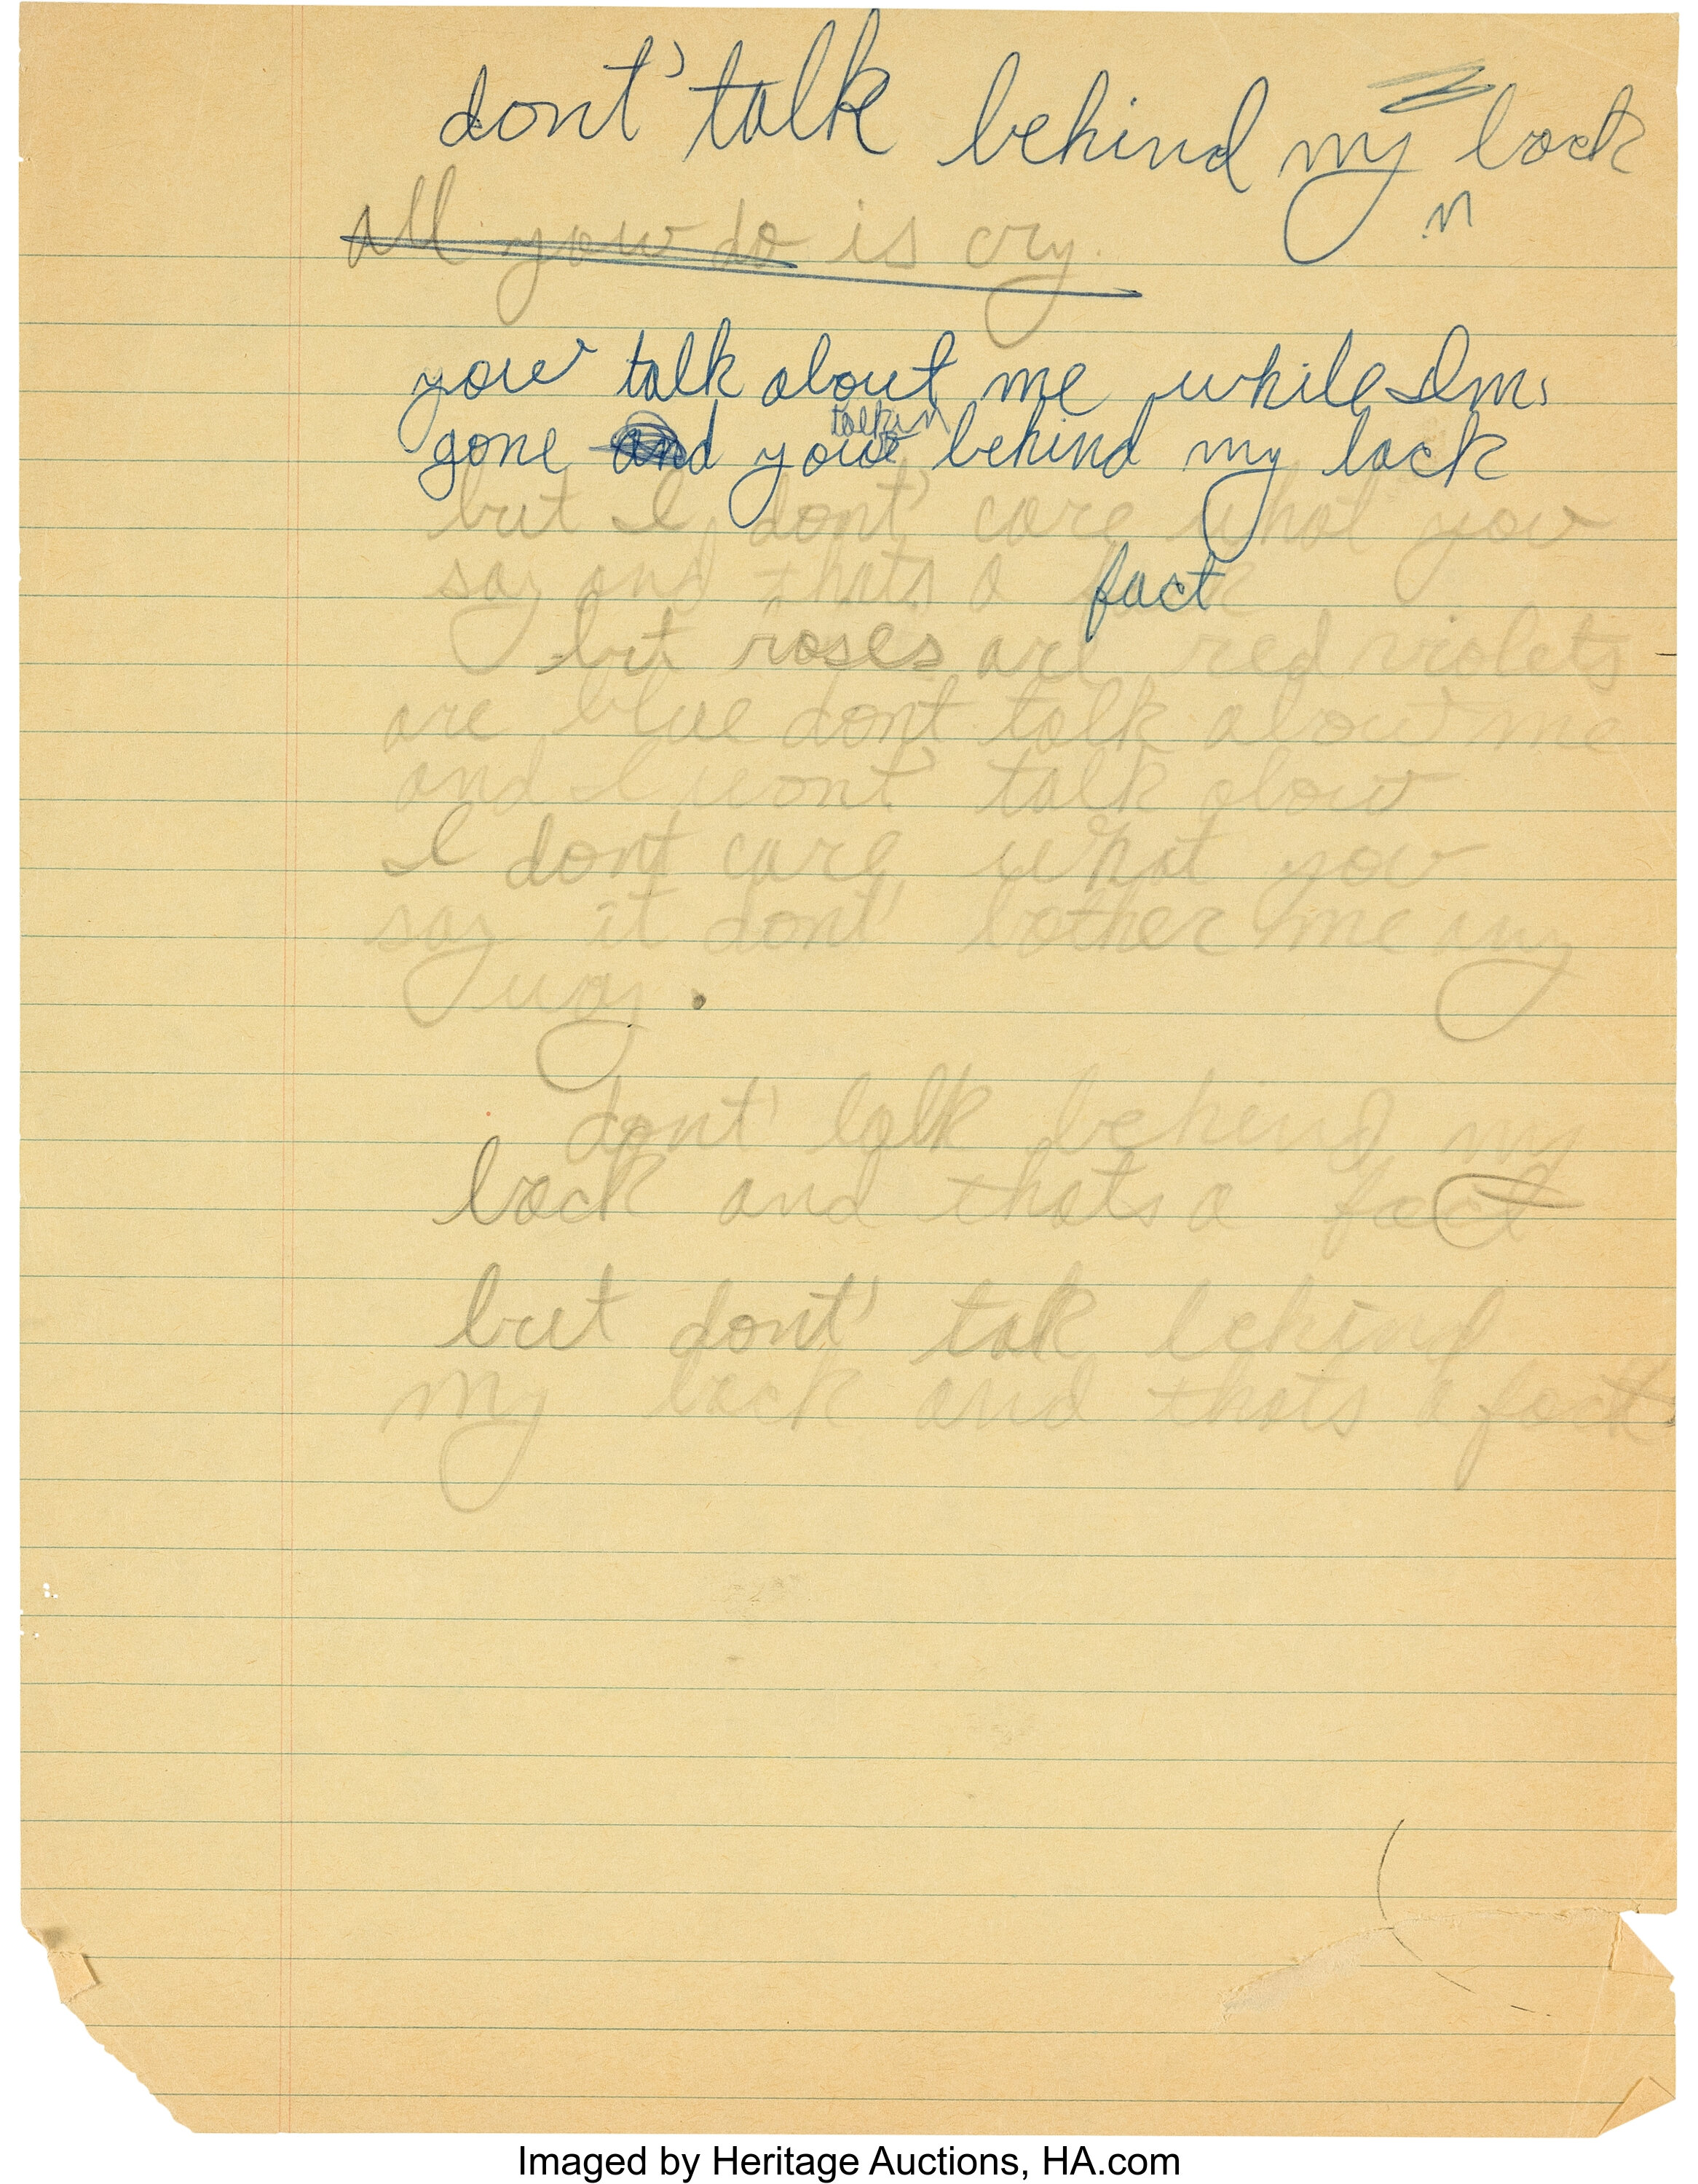 dont' talk behind my back
n
all you do is cry.
you talk about me while Im
gone and you talkin behind my back
but I dont' care what you
say and thats a fact
but roses are red violets
are blue dont talk about me
and I wont' talk abou
I dont care what you
say it dont' bother me any
way.
dont' talk behind my
back and thats a fact
but dont' talk behind
my back and thats a fact
Imaged by Heritage Auctions, HA.com